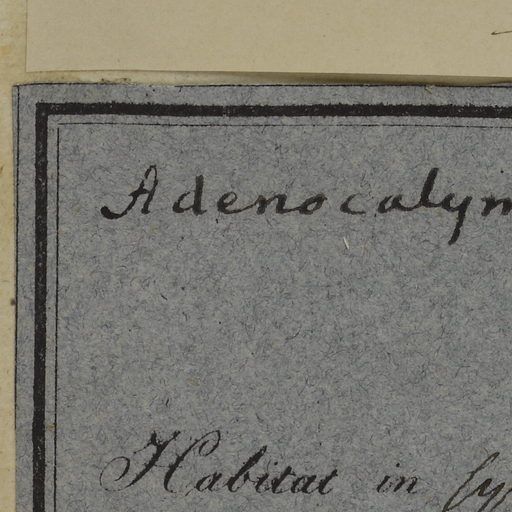 Adenocalym
Habitat in sy